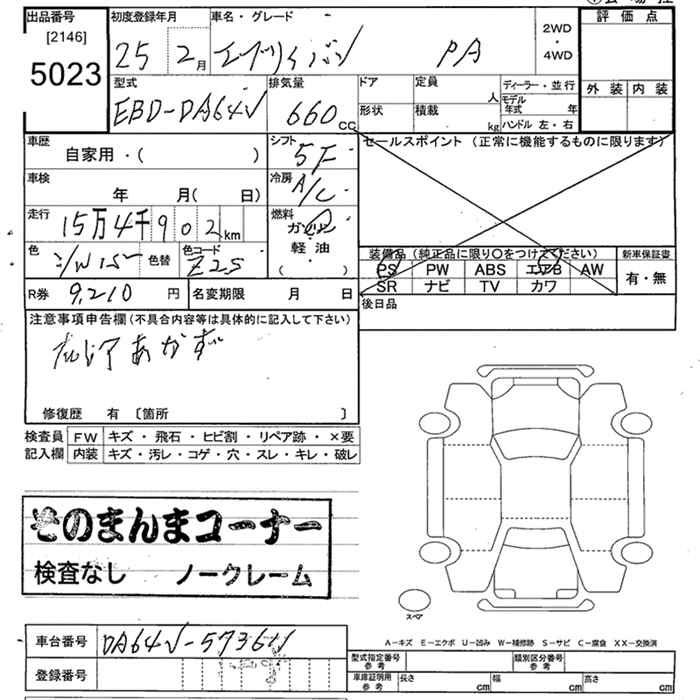 出品番号
[2146]
5023
初度登録年月
25 2月
車名・グレード
エブリィバン PA
2WD
・
4WD
評価点
外装 内装
型式
EBD-DA64V
排気量
660 cc
ドア
形状
定員 人
積載 kg
ディーラー・並行
モデル年式 年
ハンドル 左・右
車歴
自家用・( )
シフト
5F
セールスポイント (正常に機能するものに限ります)
車検
年 月( 日)
冷房
A/C
走行
15万4千902km
燃料
ガソリン
・
軽・油
( )
色
色替
色コード
Z2S
装備品(純正品に限り○をつけてください)
PS PW ABS エアB AW
SR ナビ TV カワ
新車保証書
有・無
R券 9,210 円
名変期限 月 日
後日品
注意事項申告欄(不具合内容等は具体的に記入して下さい)
あかず
修復歴 有 〔箇所 〕
検査員記入欄
FW キズ・飛石・ヒビ割・リペア跡・×要
内装 キズ・汚レ・コゲ・穴・スレ・キレ・破レ
そのまんまコーナー
検査なし ノークレーム
スペア
A-キズ E-エクボ U-凹み W-補修跡 S-サビ C-腐食 XX-交換済
車台番号
登録番号
型式指定番号参考
類別区分番号参考
車庫証明用参考
長さ cm
幅 cm
高さ cm